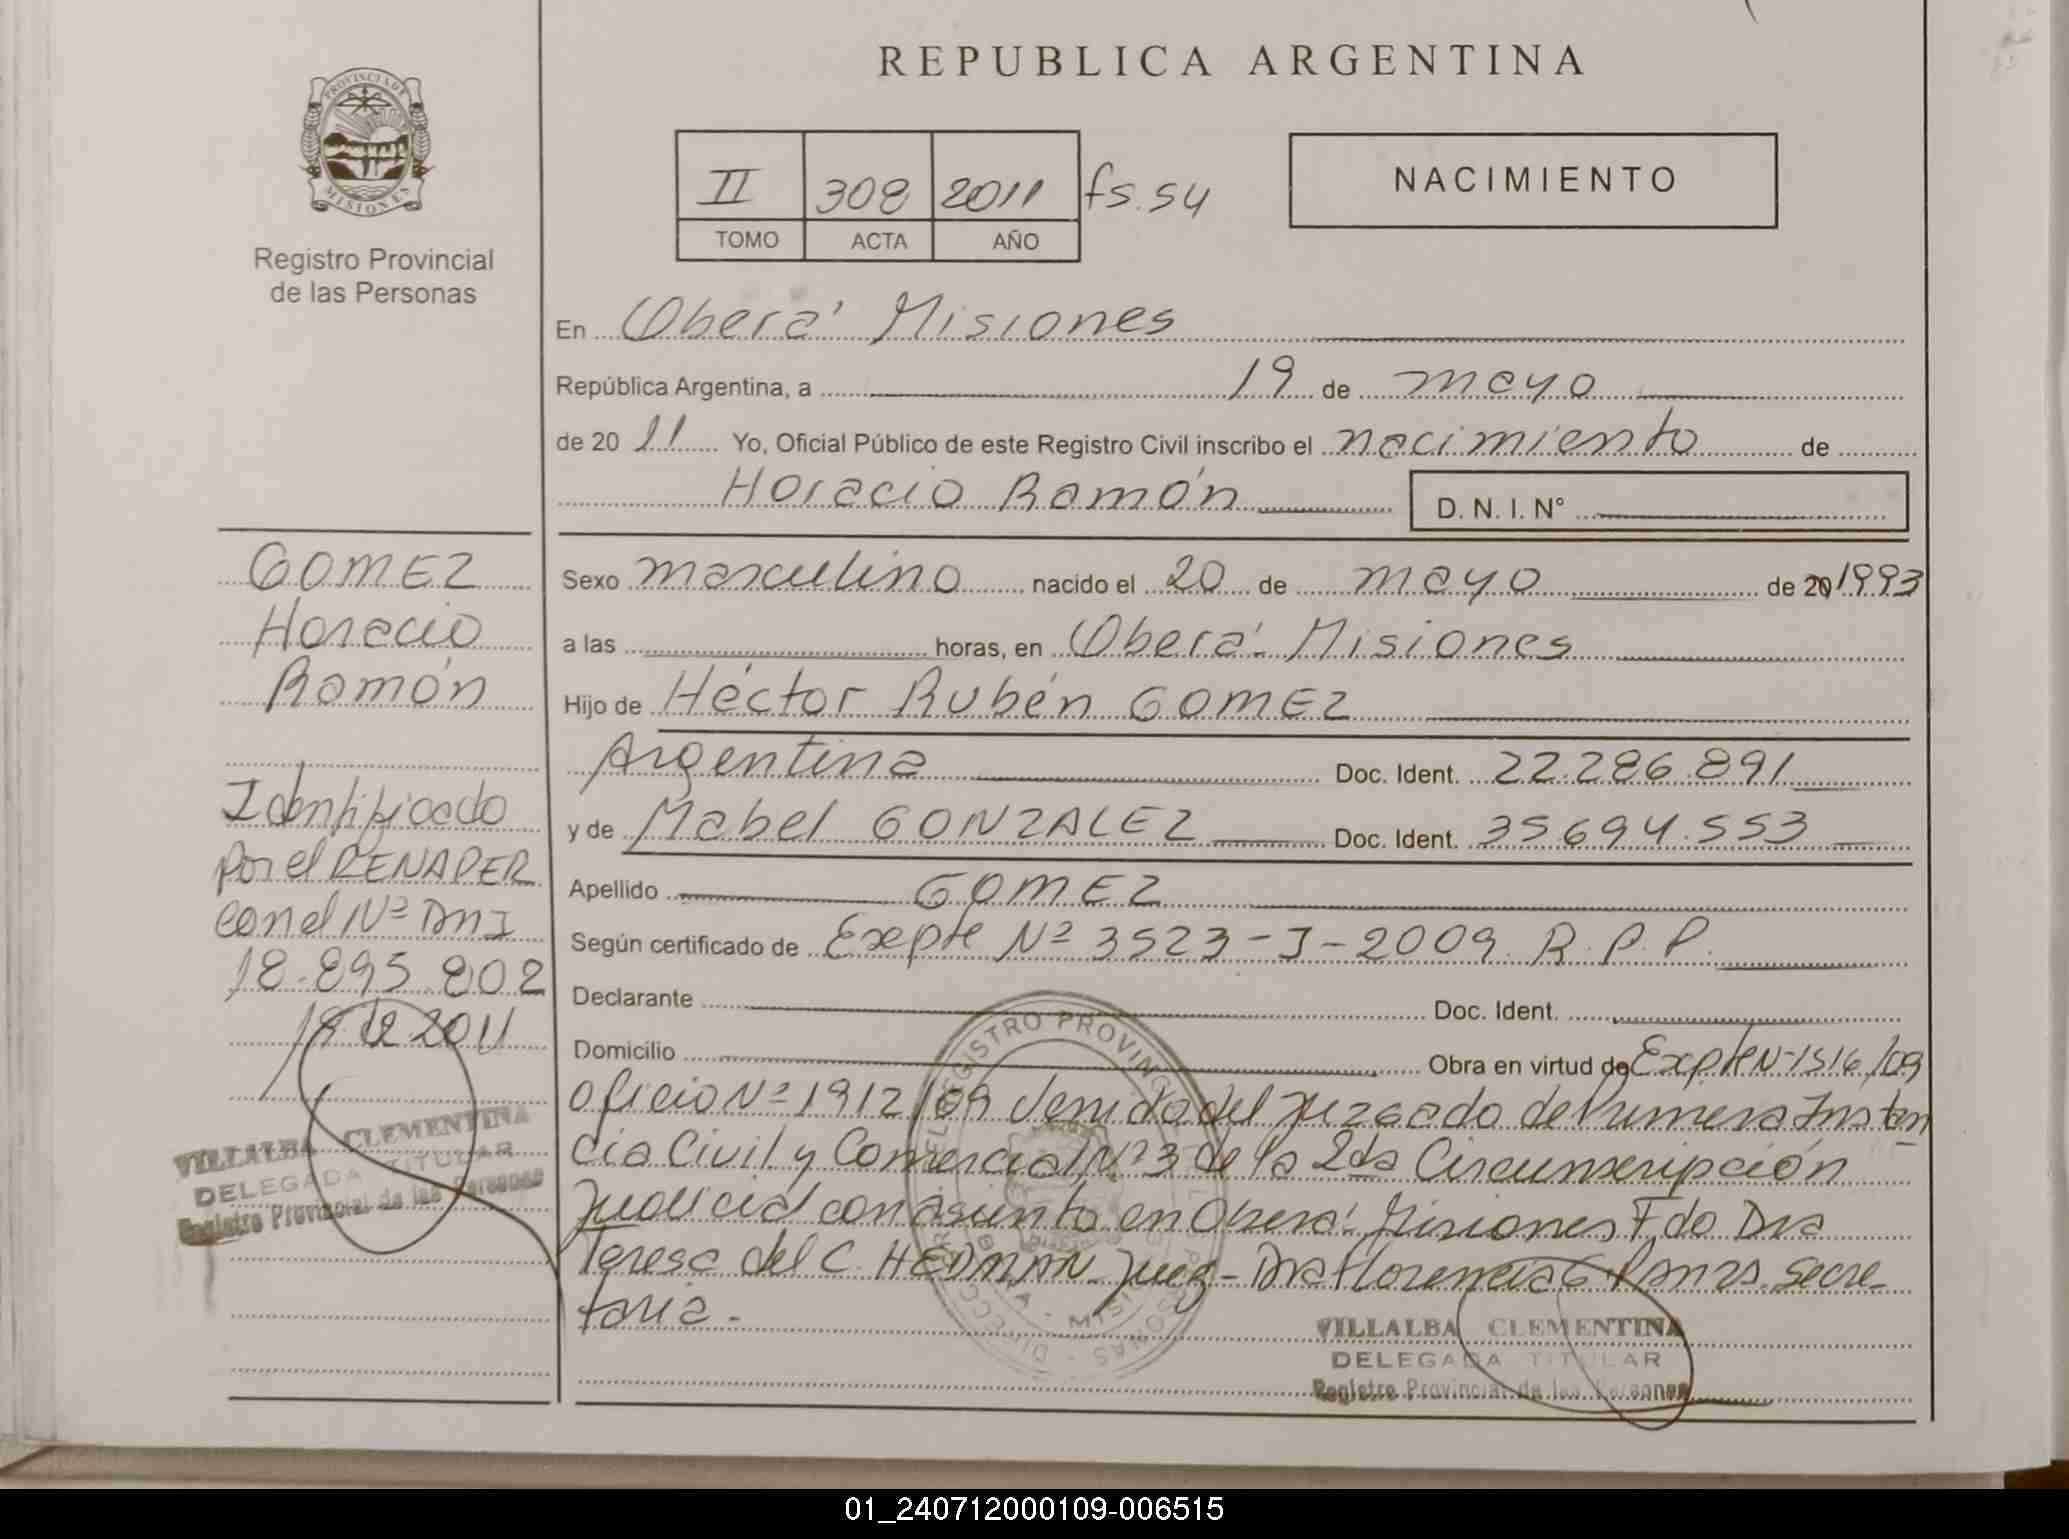 REPUBLICA ARGENTINA
PROVINCIA DE MISIONES
Registro Provincial
de las Personas
II 308 2011 fs. 54
TOMO ACTA AÑO
NACIMIENTO
En Oberá Misiones
República Argentina, a 19 de mayo
de 20 11 Yo, Oficial Público de este Registro Civil inscribo el nacimiento de
Horacio Ramón D. N. I. N°
GOMEZ
Horacio
Ramón
Identificado
por el RENAPER
con el Nº DNI
18.895.802
2011
VILLALBA CLEMENTINA
DELEGADA TITULAR
Registro Provincial de las Personas
Sexo masculino nacido el 20 de mayo de 20 1993
a las horas, en Oberá - Misiones
Hijo de Héctor Rubén GOMEZ
Argentina Doc. Ident. 22.286.891
y de Mabel GONZALEZ Doc. Ident. 35.694.553
Apellido GOMEZ
Según certificado de Expte Nº 3523-J-2009. R. P. P.
Declarante Doc. Ident.
Domicilio Obra en virtud de Expte N-1516/09
Oficio Nº 1912/09 venido del Juzgado de Primera Instan
cia Civil y Comercial Nº 3 de la 2da Circunscripción
Judicial con asiento en Oberá - Misiones Fdo Dra
Teresa del C. HEDMAN Juez - Dra Florencia Secre-
taria.-
VILLALBA CLEMENTINA
DELEGADA TITULAR
Registro Provincial de las Personas
01_240712000109-006515